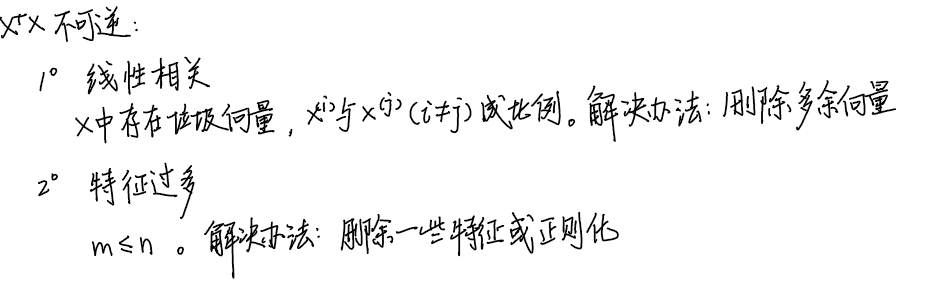 XᵀX 不可逆：
1° 线性相关
X中存在垃圾向量，x⁽ⁱ⁾与x⁽ʲ⁾(i≠j)成比例。解决办法：删除多余向量
2° 特征过多
m≤n。解决办法：删除一些特征或正则化